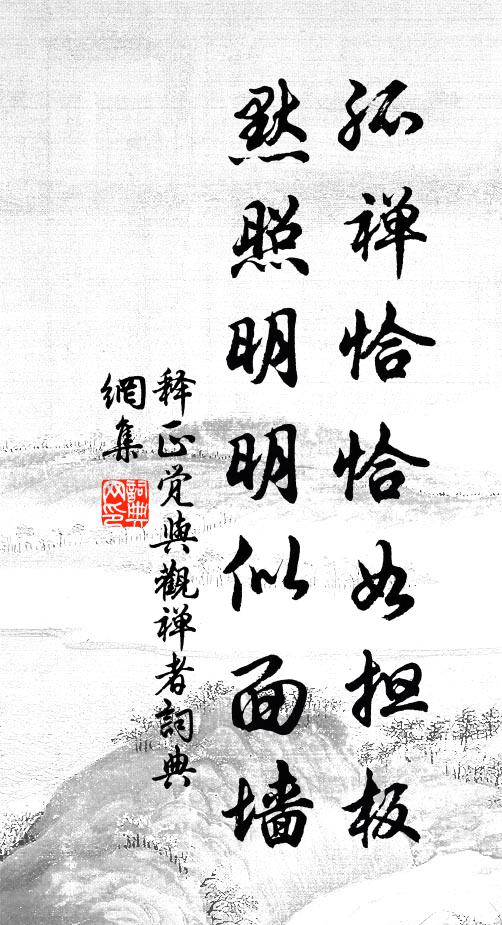 孤禅恰恰如担板
默照明明似面墙
释正觉與觀禅者詞典
網集
詞典
网印